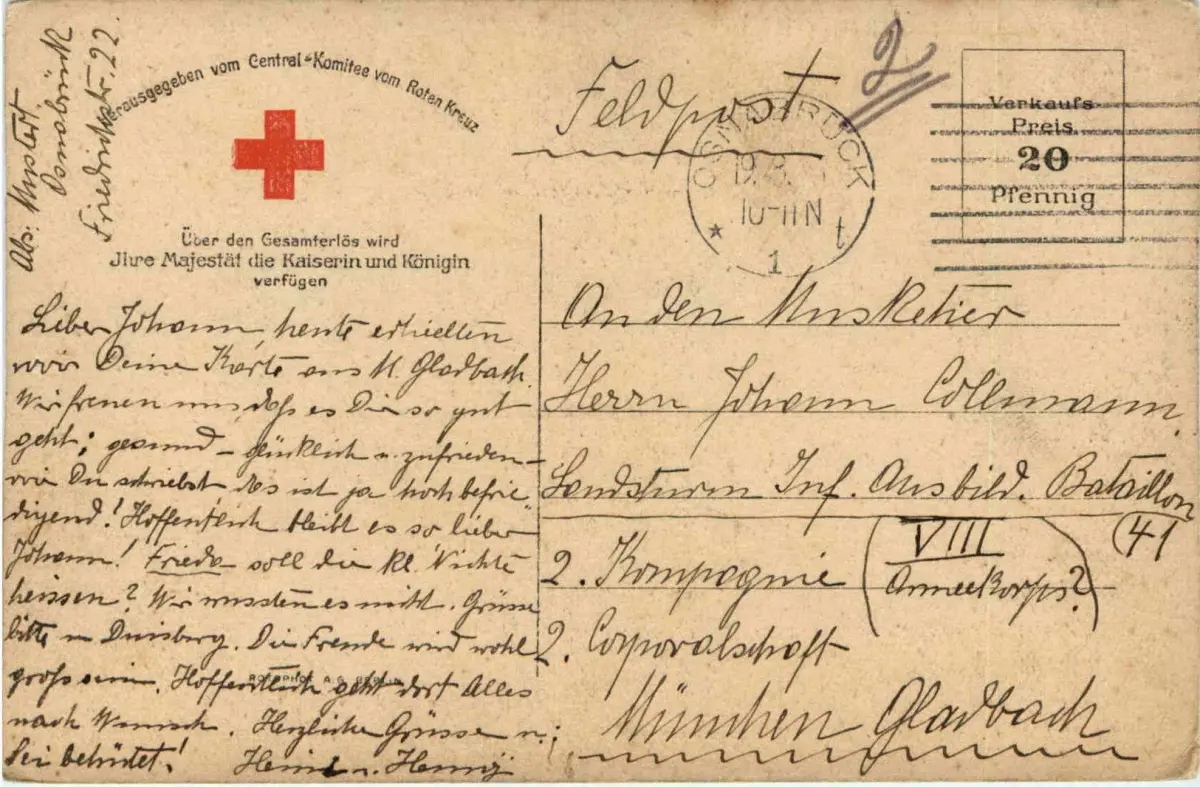 Abs: Mustert
Osnabrück
Friedrichstr. 22
Herausgegeben vom Central-Komitee vom Roten Kreuz
Über den Gesamterlös wird
Ihre Majestät die Kaiserin und Königin
verfügen
Feldpost
2
OSNABRÜCK
19.8.
10-11 N
* 1 t
Verkaufs
Preis
20
Pfennig
Lieber Johann, heute erhielten
wir Deine Karte aus M. Gladbach.
Wir freuen uns daß es Dir so gut
geht; gesund – glücklich u. zufrieden –
wie Du schriebst das ist ja hoch befrie
digend! Hoffentlich bleibt es so lieber
Johann! Frieda soll die kl. Nichte
heissen? Wir wussten es nicht. Grüsse
bitte n Duisburg. Die Freude wird wohl
groß sein. Hoffentlich geht dort Alles
nach Wunsch. Herzliche Grüsse u.
Sei behütet!
An den Musketier
Herrn Johann Collmann.
Landsturm Inf. Ausbild. Bataillon
VIII
41
2. Kompagnie
Armeekorps?
2. Corporalschaft
München Gladbach